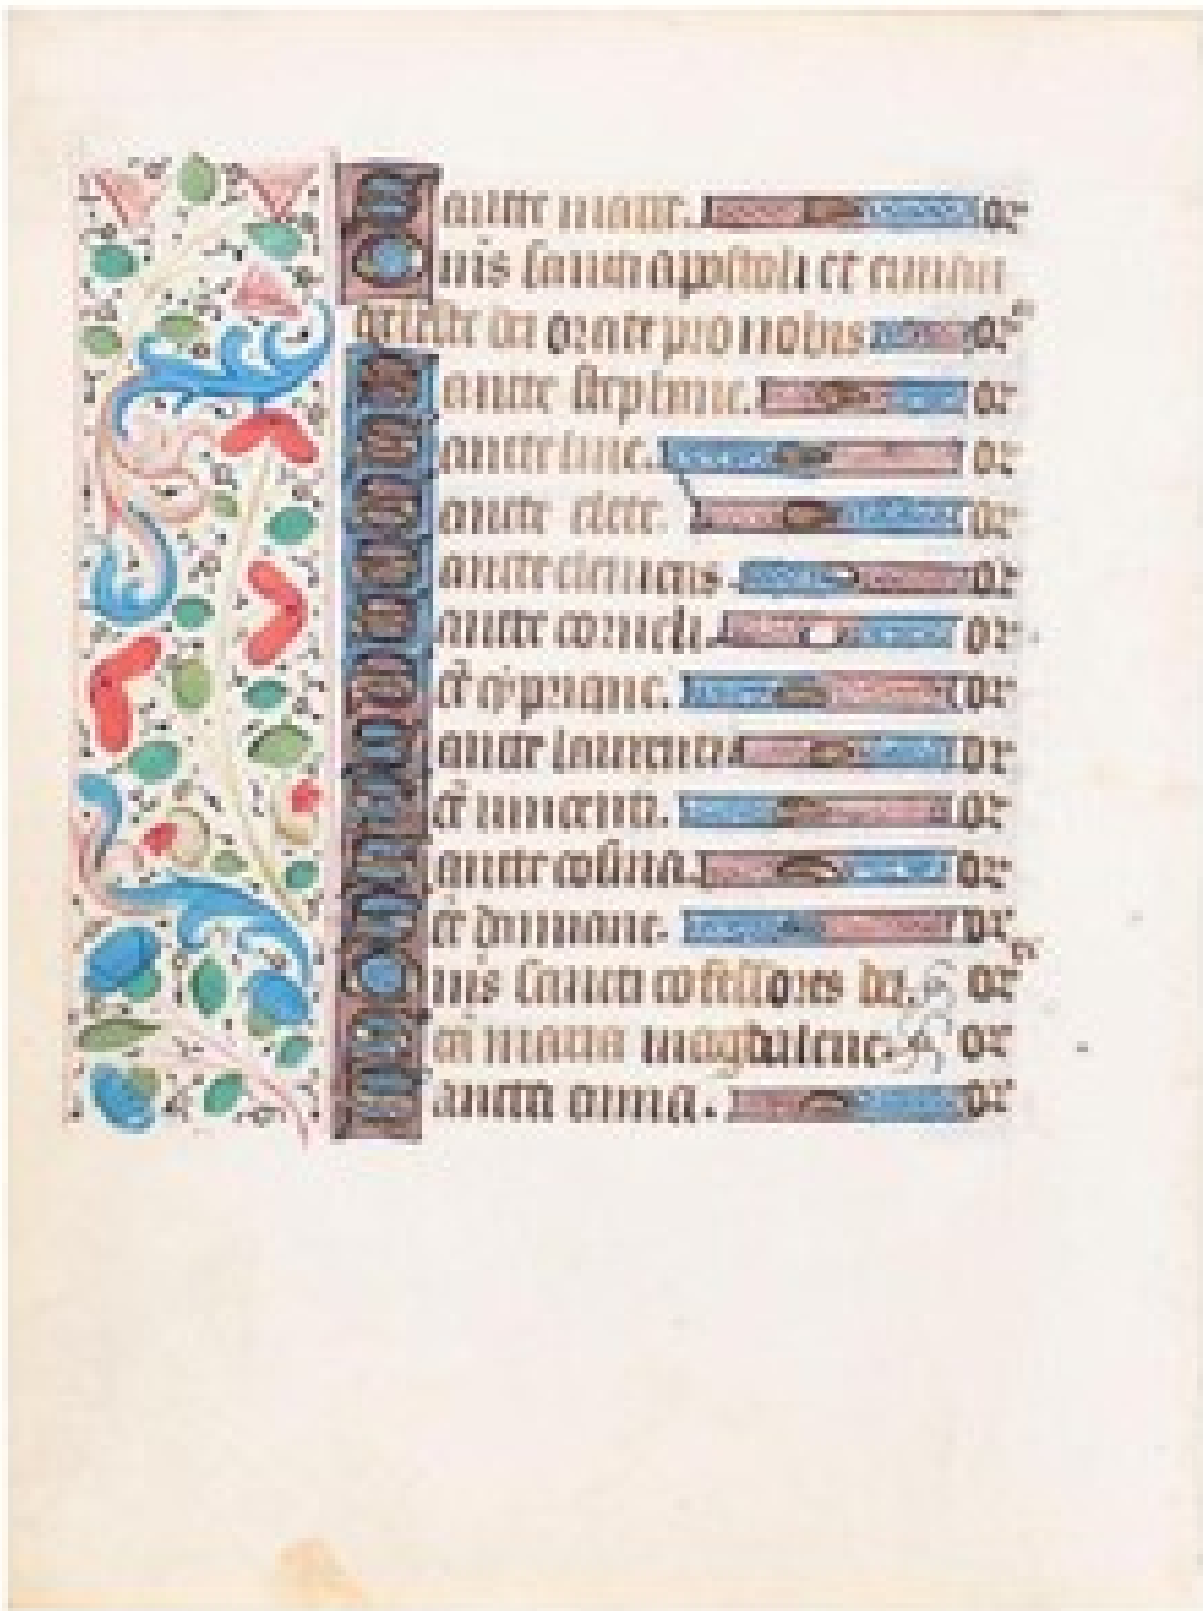 Sancte marce. or
Omnes sancti apostoli et euuan
geliste dei orate pro nobis or
Sancte stephane. or
Sancte line. or
Sancte clete. or
Sancte clemens or
Sancte corneli. or
Et cypriane. or
Sancte laurenti or
Et vincenti. or
Sancte cosma. or
Et damiane. or
Onīs sancti cōfessores dei. or
maria magdalene. or
Sancta anna. or